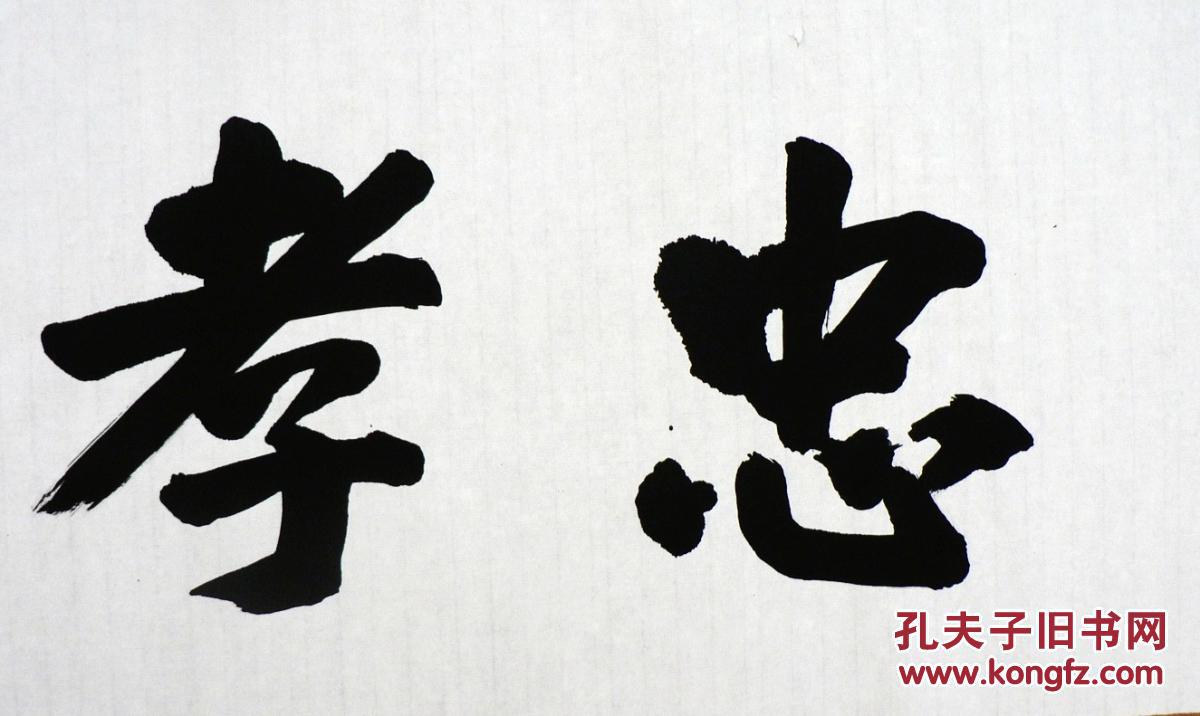 忠孝
孔夫子旧书网
www.kongfz.com